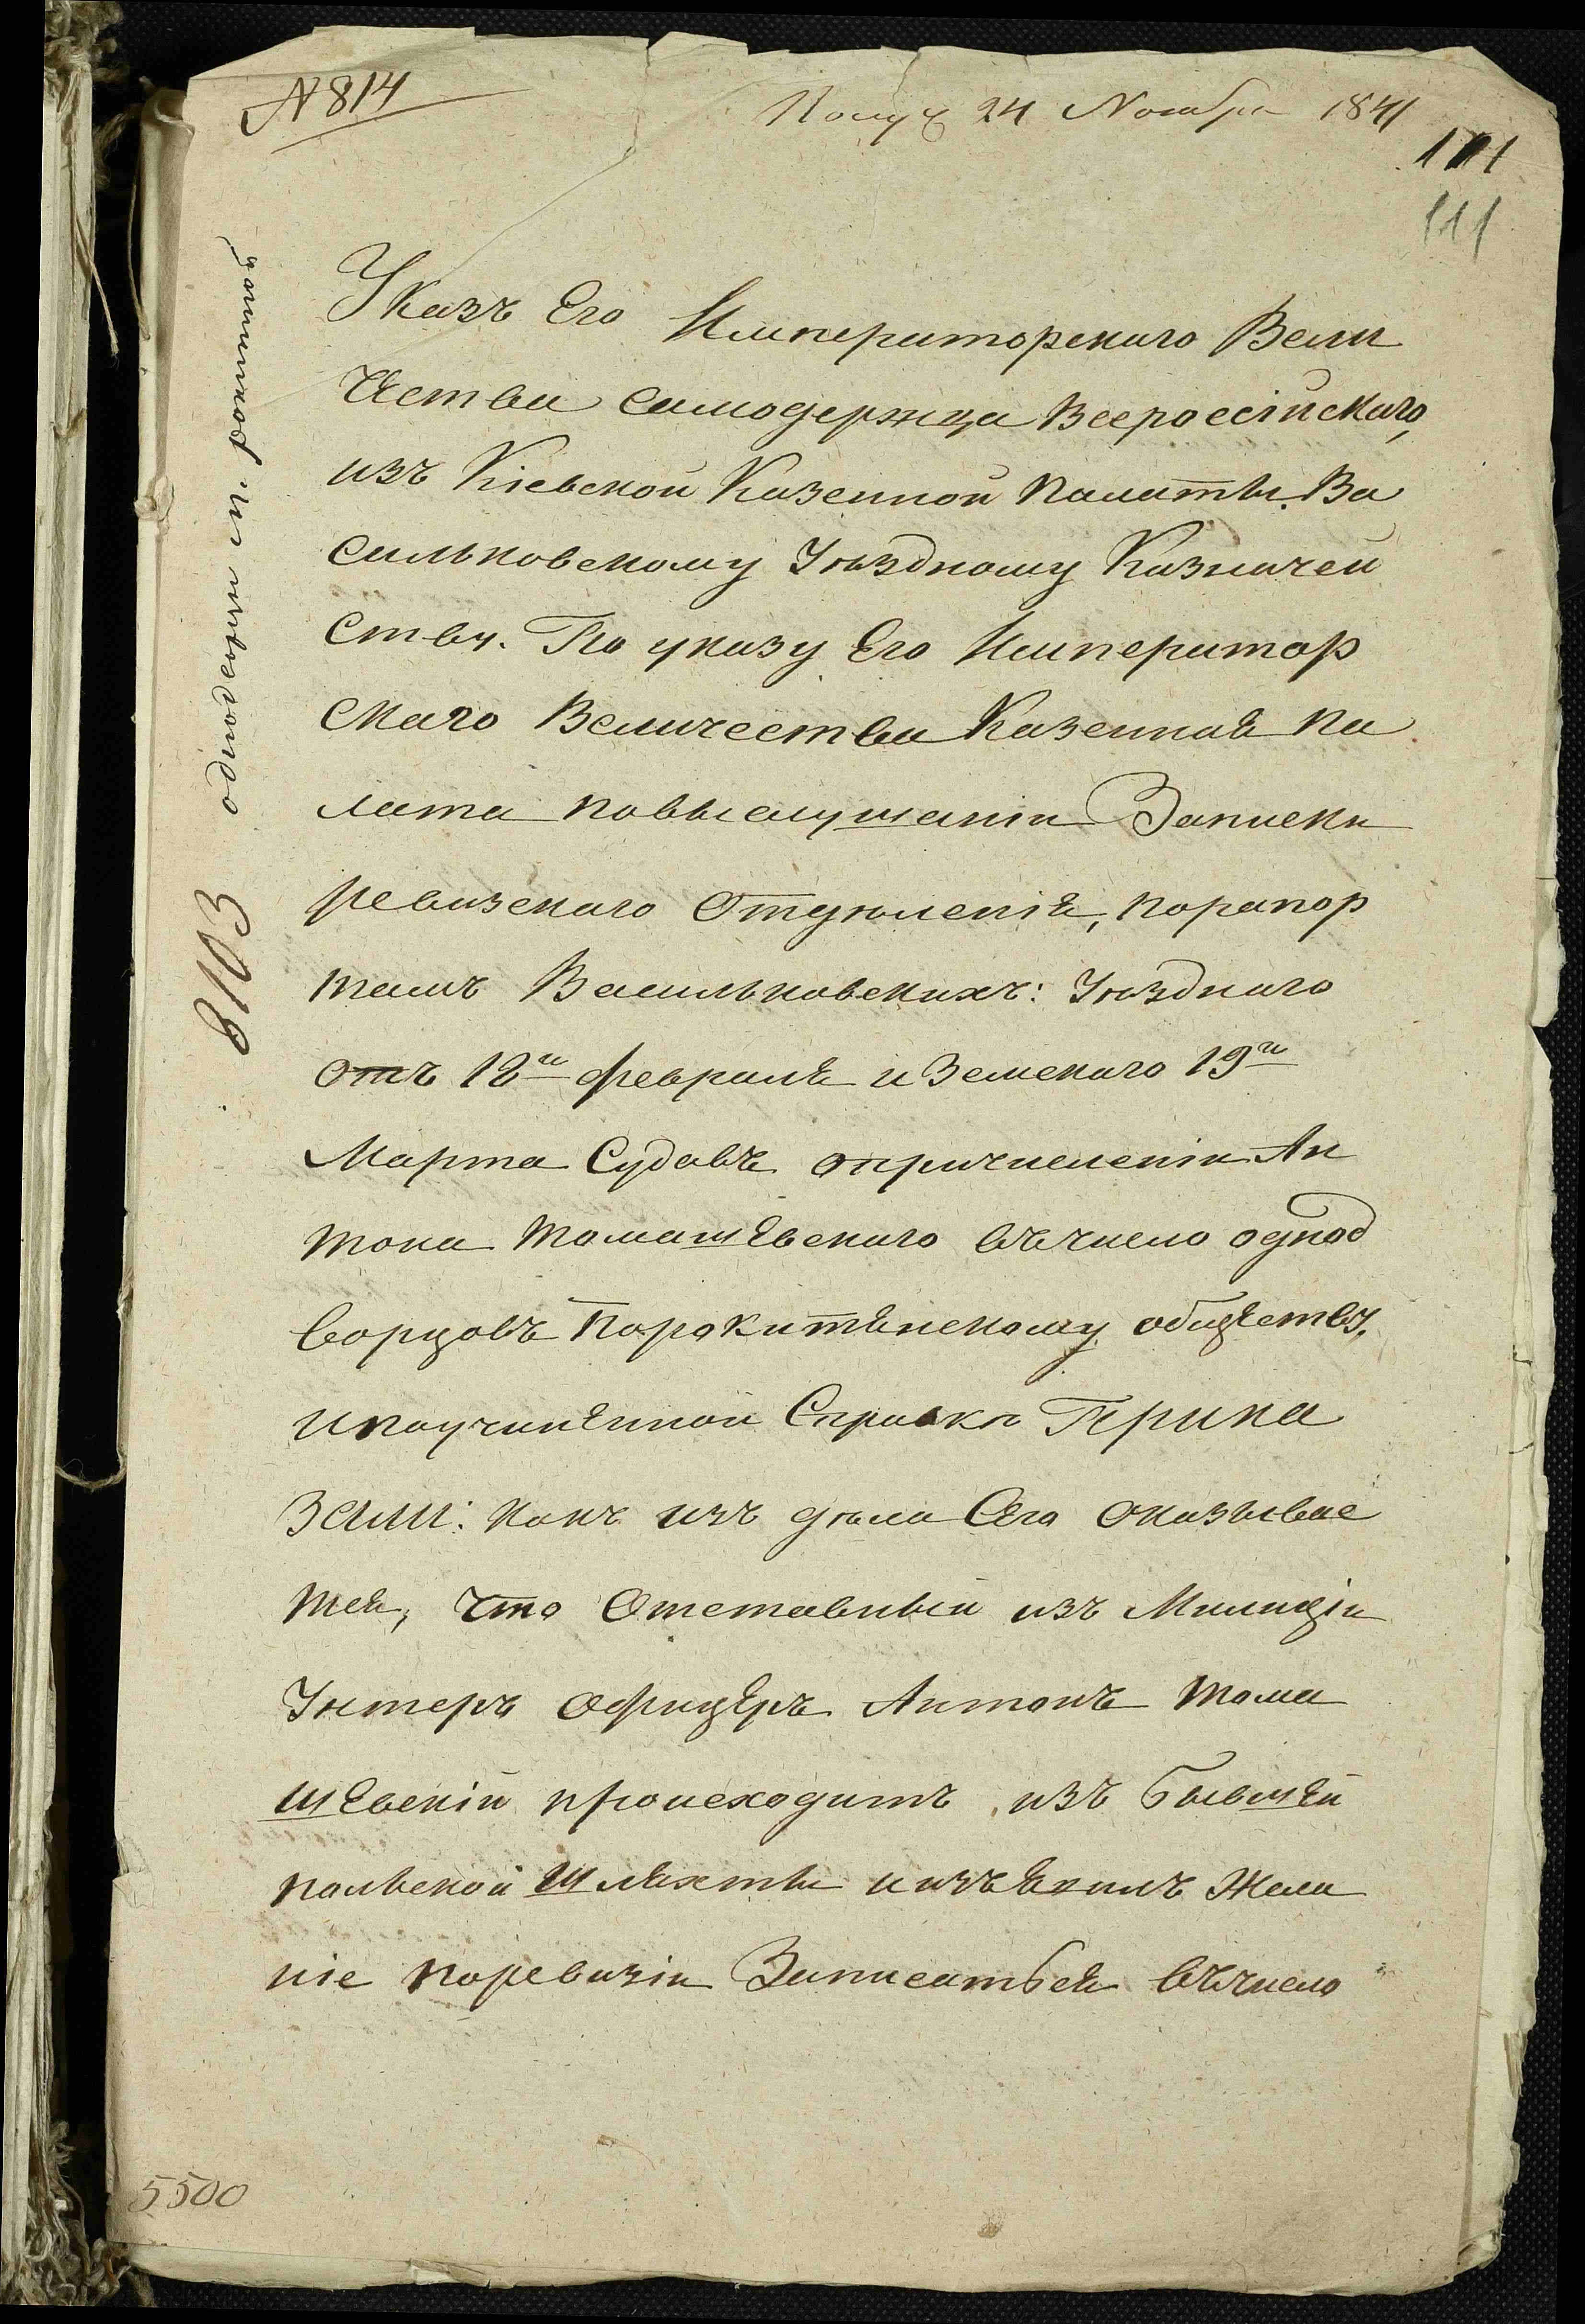 № 814
Получ 24 Ноября 1841
111
111
однодворци м. рокитной
8103
Указъ Его Императорскаго Вели
чества самодержца Всероссійскаго,
изъ Кіевской Казенной палаты. Ва
сильковскому Уѣздному Казначей
ству. По указу Его Император
скаго Величества Казенная па
лата повыслушаніи Записки
ревизскаго Отдѣленія, порапор
тамъ Васильковскихъ: Уѣзднаго
отъ 12го февраля и Земскаго 19го
Марта Судовъ опричисленіи Ан
тона томашевскаго въчисло однод
ворцовъ Порокитянскому обществу,
ипоучиненной Справкѣ Прика
зали: какъ изъ дѣла Сего оказывае
тся, что Отставный изъ Милиціи
Унтеръ офицеръ Антонъ тома
шевскій происходитъ изъ бывшей
польской шляхты иизъявилъ Жела
ніе поревизіи Записаться въчисло
5500